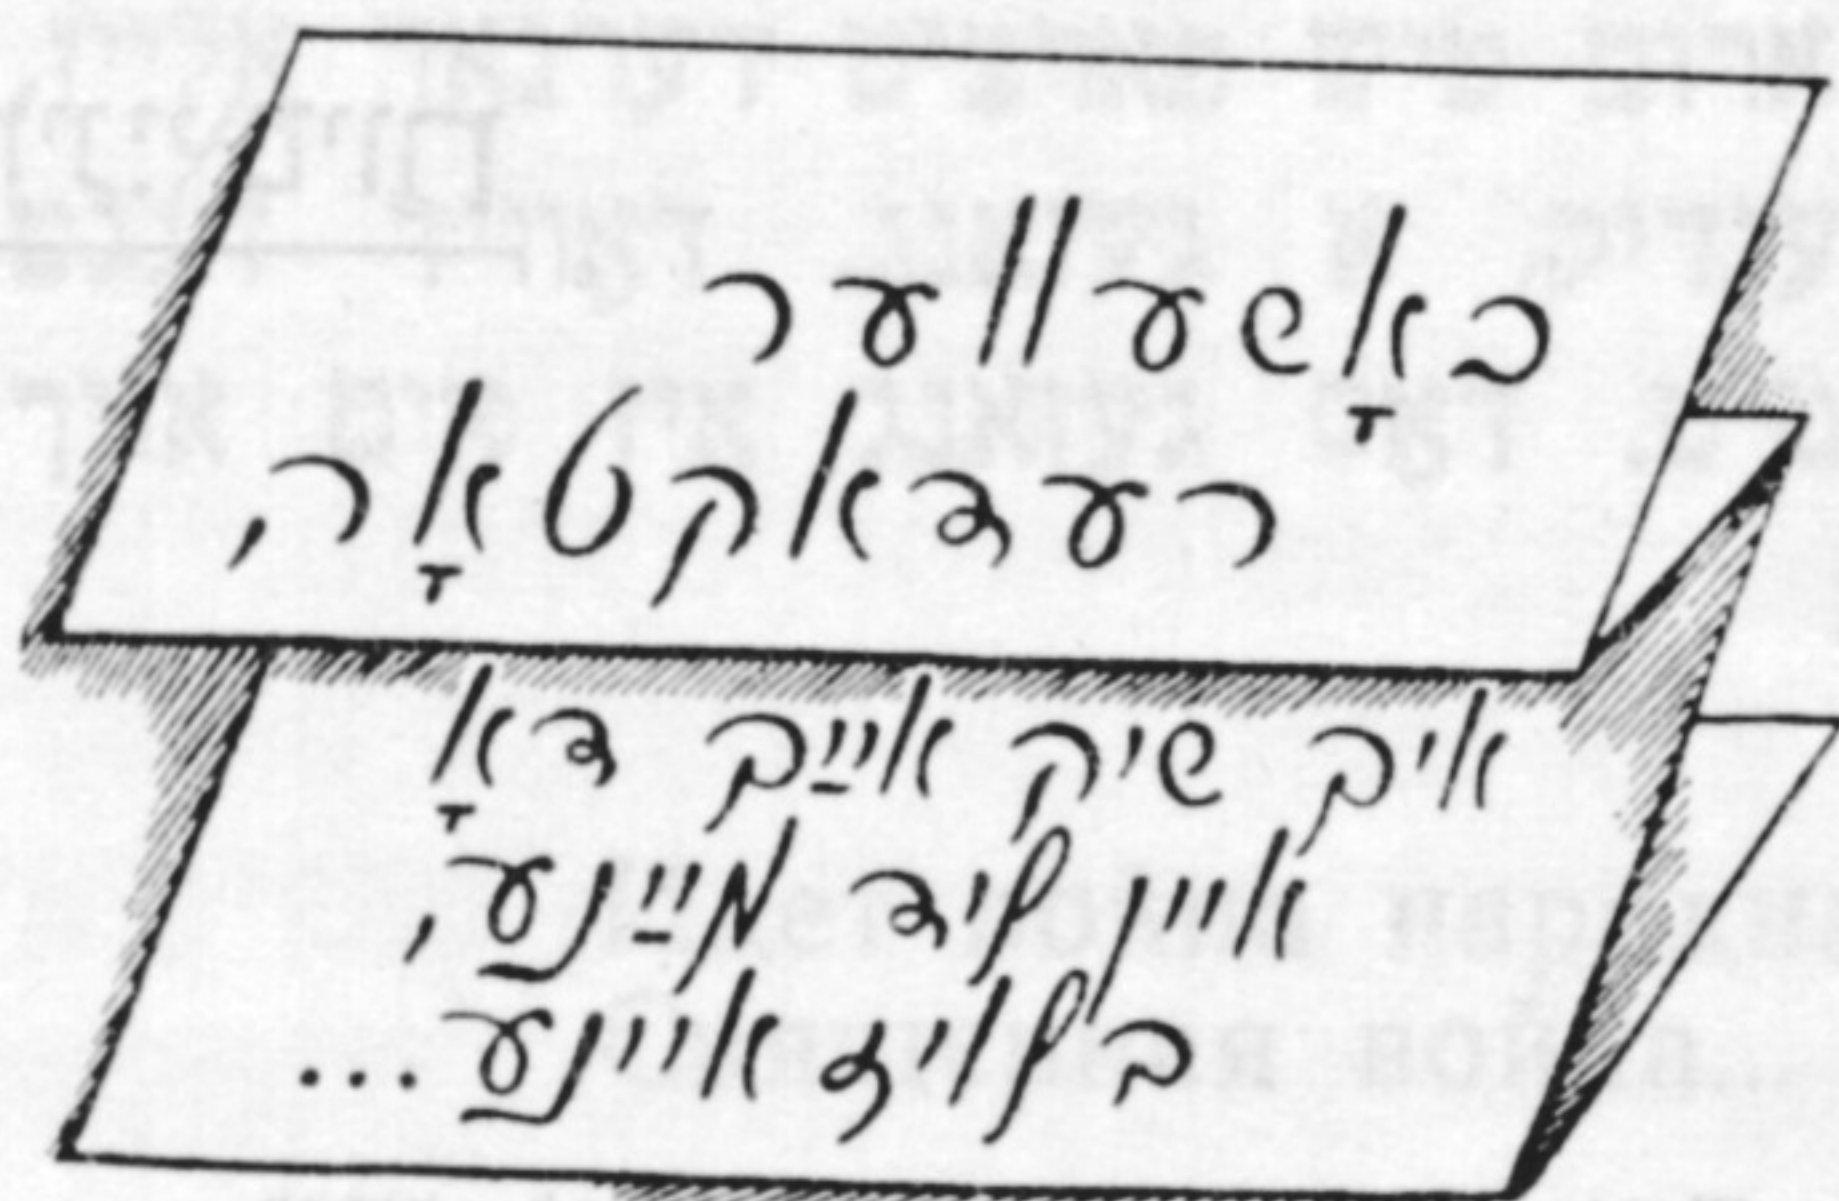 כאָשעווער
רעדאקטאָר,
איך שיק אײַך דאָ
איין ליד מײַנע,
בלויז איינע...